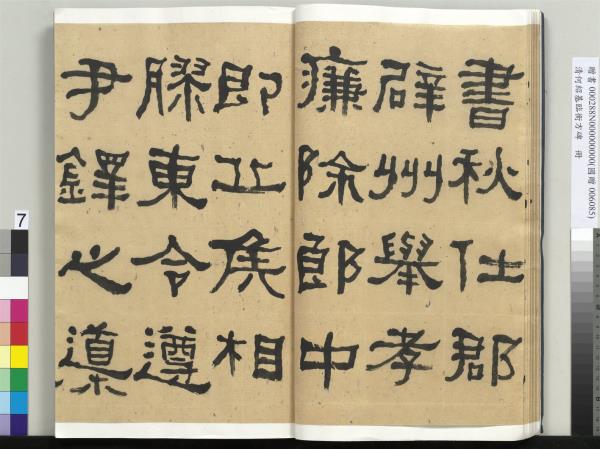 書秋仕郡
辟州舉孝
廉除郎中
即丘侯相
膠東令遵
尹鐸之導
贈書 000288N000000000(國贈 006085)
清何紹基臨衡方碑 冊
7